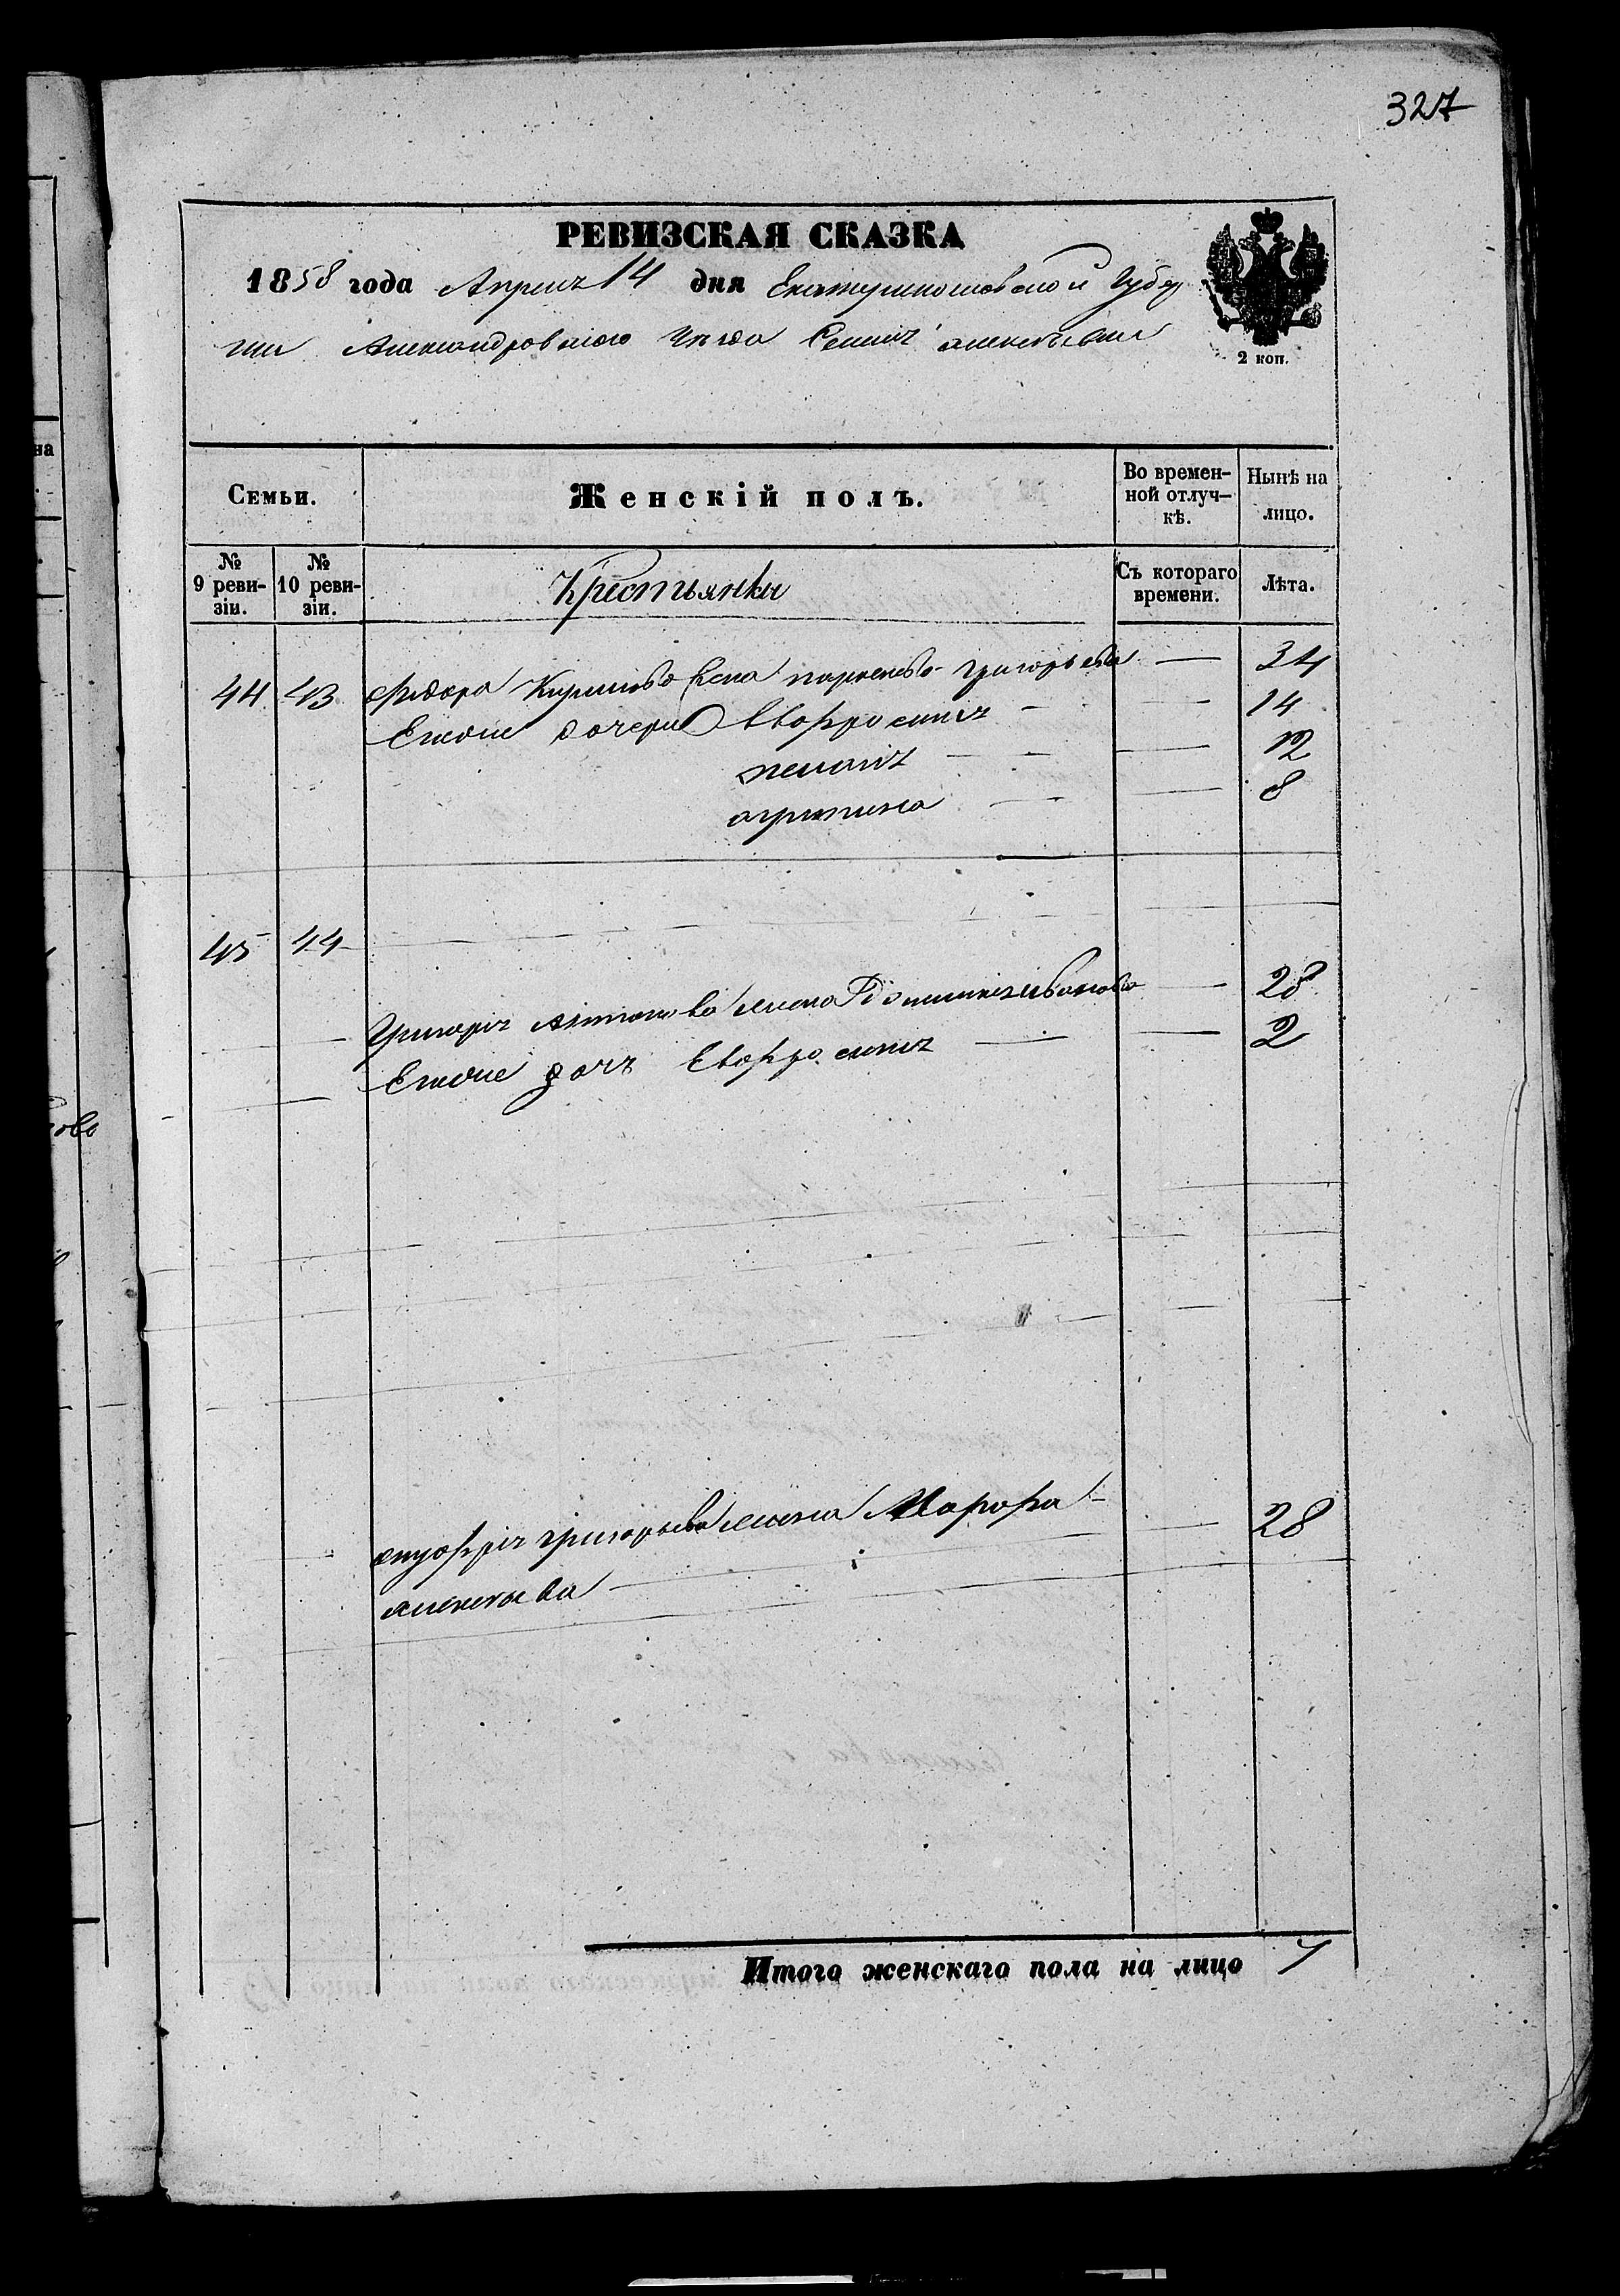 327
РЕВИЗСКАЯ СКАЗКА
1858 года Апреля 14 дня Екатеринославской Губер
нии Александровского Уезда алексеевки
2 коп.
Семьи.
Женскій полъ.
Во времен-
ной отлуч-
кѣ.
Нынѣ на
лицо.
№
9 реви-
зіи.
№
10 реви-
зіи.
Крестьянки
Съ котораго
времени.
Лѣта.
44 43 Федора Кирилова Жена Григорьева — 34
Ежоие дочери Евфросиния — 14
пелагия — 12
агрипина — 8
45 44
Григория Антонова жена Домникия иванова — 28
Ежоие дочь Евфросиния — 2
онуфрия григорьева жена Марфа — 28
алексеева
Итого женскаго пола на лицо 7